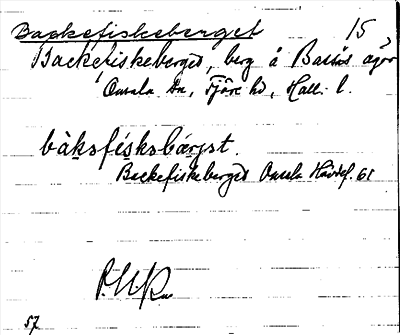 Backefiskeberget 15
Backefiskeberget, berg å Bassås ägor
Onsala sn, Fjäre hd, Hall. l.
bàksfísksbæ̀rjət.
Backefiskeberget Onsala Hävdef. 61
57